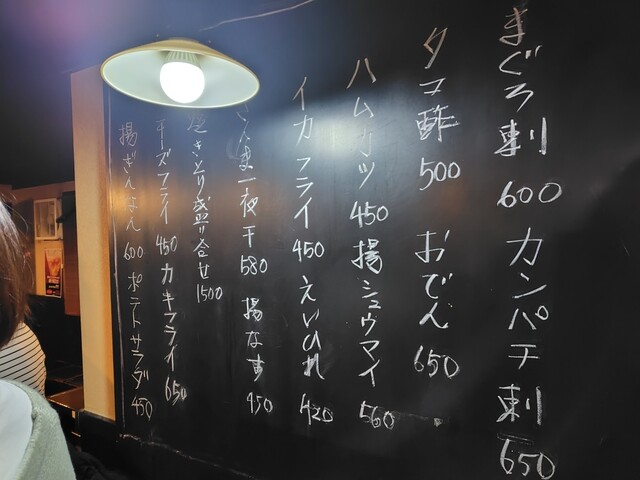 まぐろ刺 600 カンパチ刺 650
タコ酢 500 おでん 650
ハムカツ 450 揚シュウマイ 560
イカフライ 450 えいひれ 420
さんま一夜干 580 揚な事 450
焼きとり盛り合せ 1500
チーズフライ 450 カキフライ 650
揚ぎんなん 600 ポテトサラダ 450